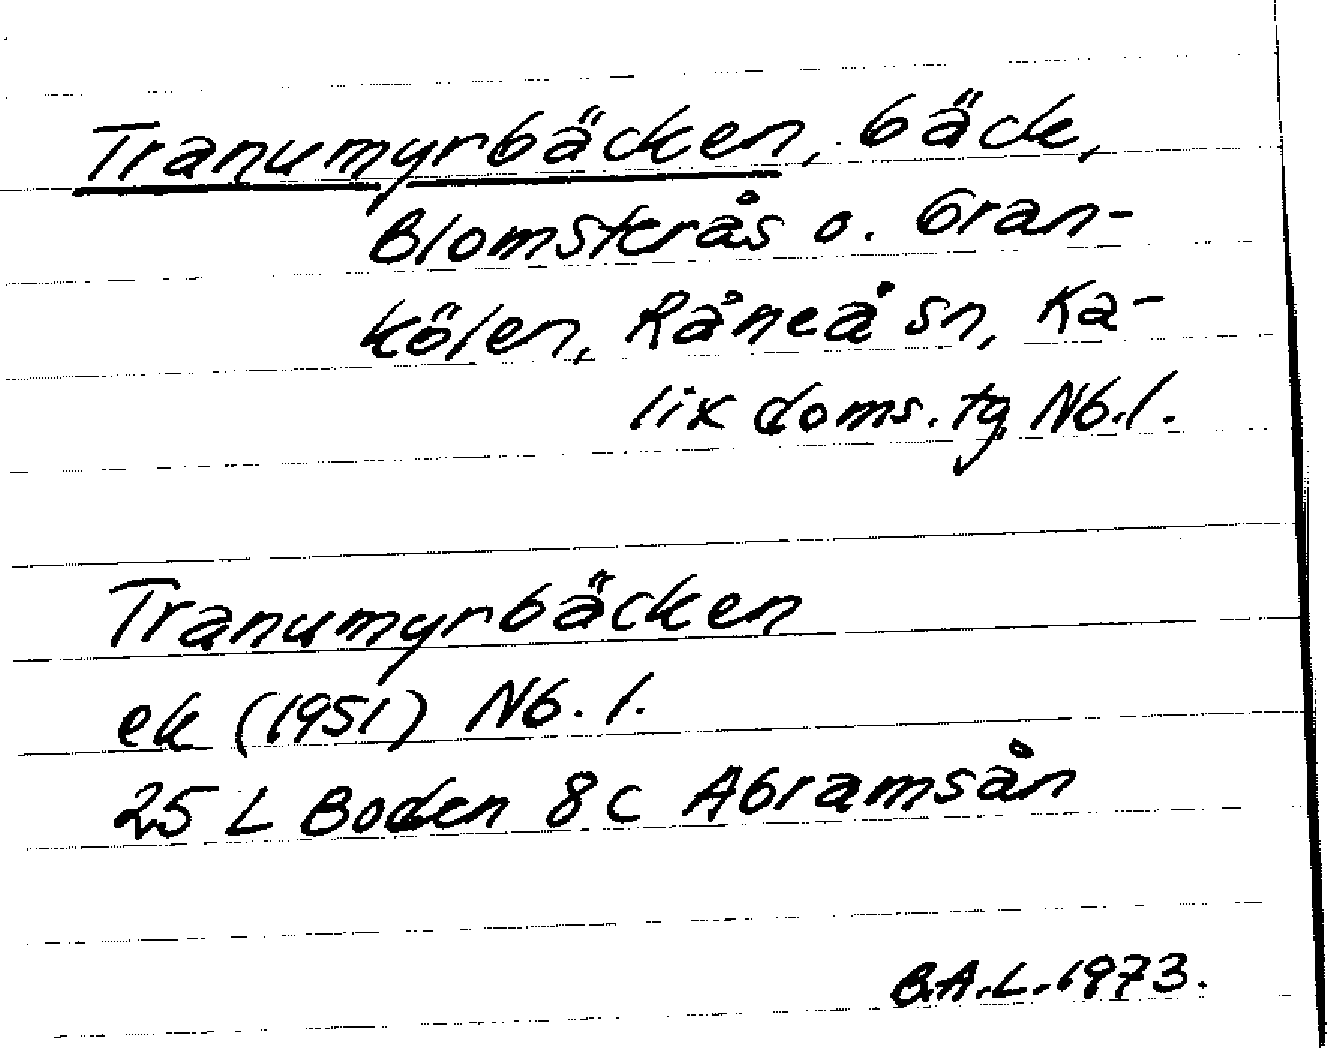 Tranumyrbäcken, bäck,
Blomsterås o. Gran-
kölen, Råneå sn, Ka-
lix doms. tg Nb. l.
Tranumyrbäcken
ek (1951) Nb. l.
25 L Boden 8c Abramsån
B.A.L. 1973.